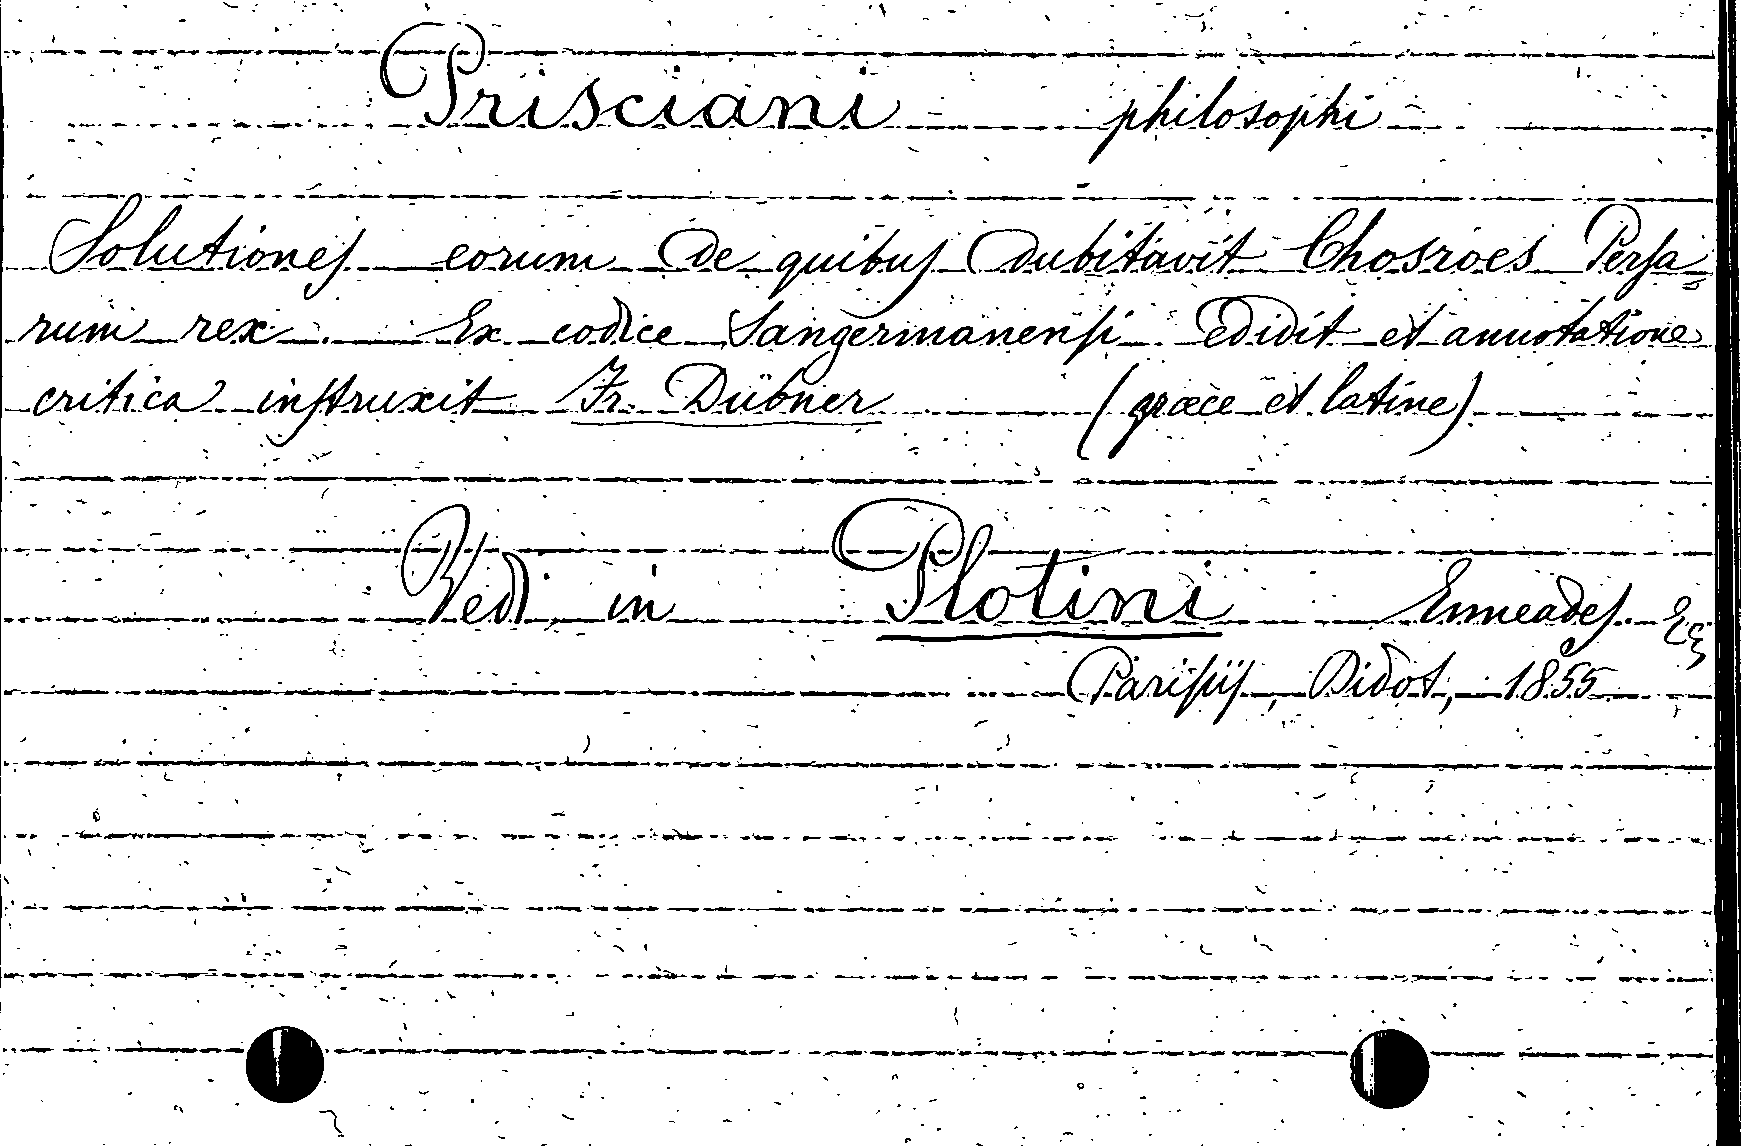 Prisciani philosophi
Solutiones eorum de quibus dubitavit Chosroes Persa=
rum rex. Ex codice Sangermanensi edidit et annotatione
critica instruxit Fr. Dübner (græce et latine)
Vedi in Plotini Enneades.
Parisiis, Didot, 1855